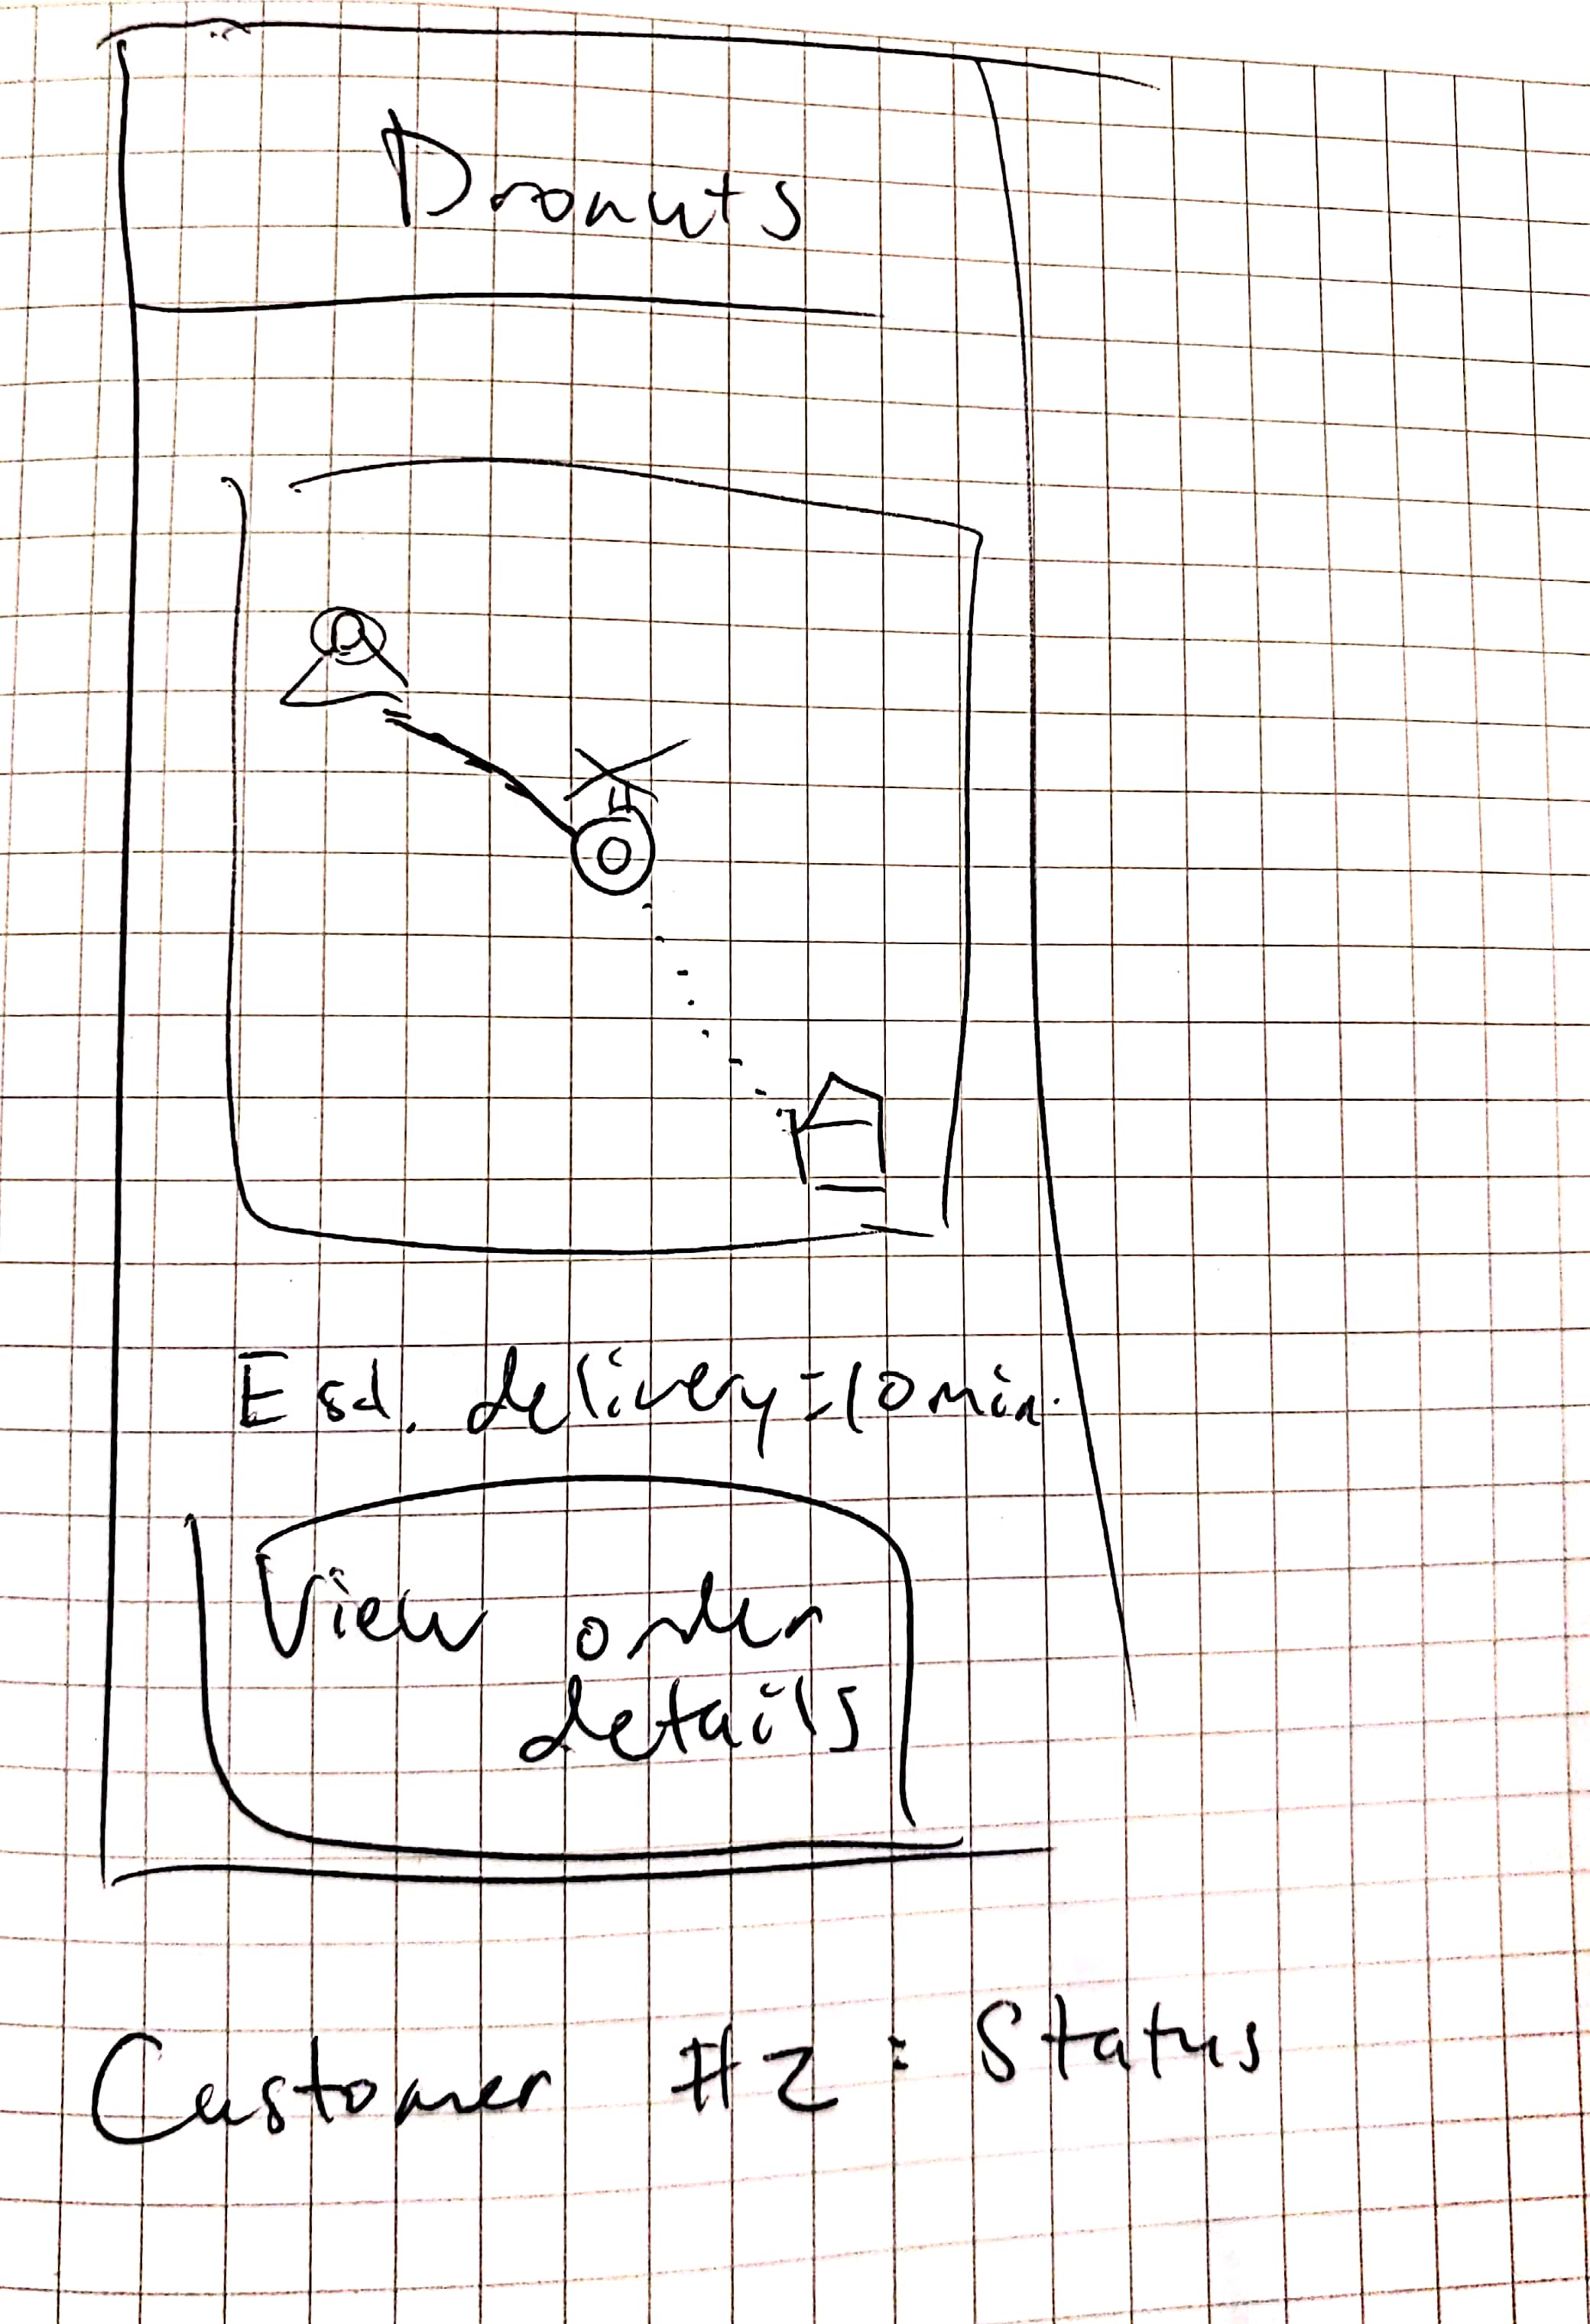 Dronuts
Est. delivery = 10 min.
View order
details
Customer #2: Status